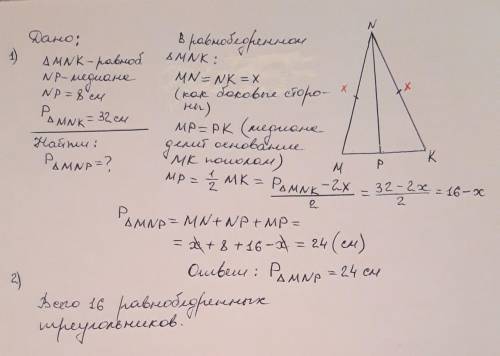 1) Дано:
ΔMNK-равноб
NP-медиана
NP = 8 см
P ΔMNK = 32 см
Найти:
P ΔMNP = ?
В равнобедренном
ΔMNK:
MN = NK = x
(как боковые сторо-
ны)
MP = PK (медиана
делит основание
MK пополам)
MP = 1/2 MK = (P ΔMNK - 2x)/2 = (32 - 2x)/2 = 16 - x
N
x x
M P K
P ΔMNP = MN + NP + MP =
= x + 8 + 16 - x = 24 (см)
Ответ: P ΔMNP = 24 см
2)
Всего 16 равнобедренных
треугольников.